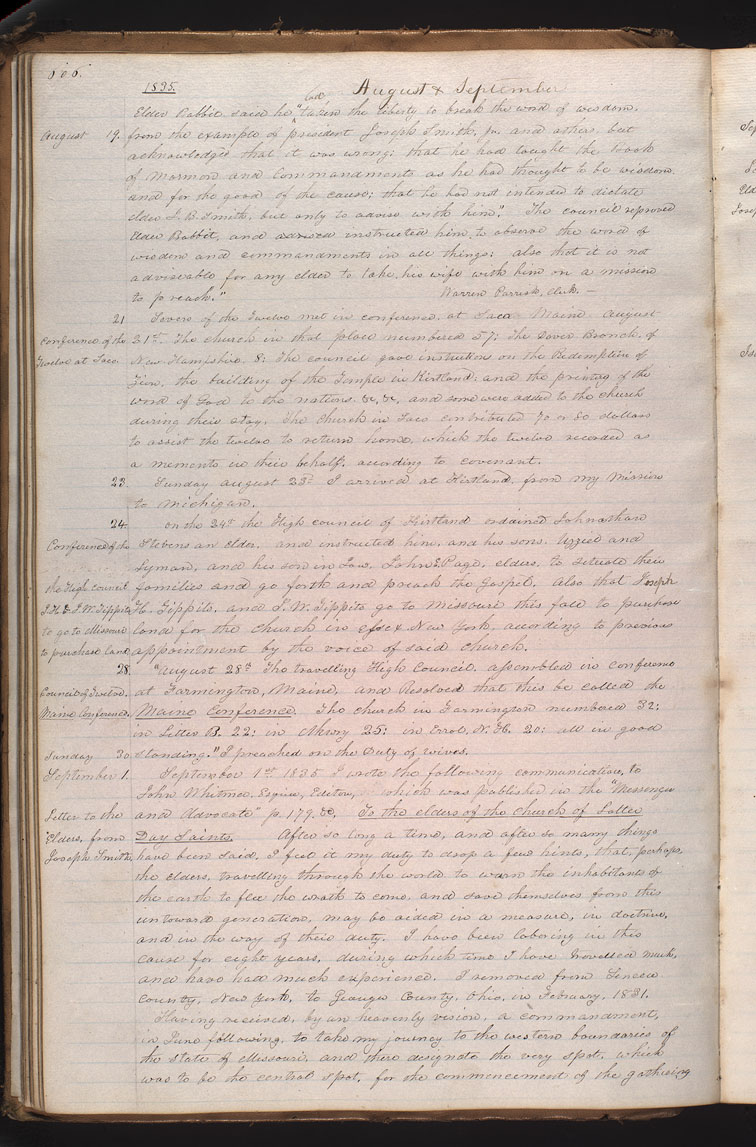 1835.
August & September
had
Elder Babbit said he "taken the liberty to break the word of wisdom,
August 19. from the example of president Joseph Smith, jr. and others, but
acknowledged that it was wrong; that he had taught the book
of Mormon and Commandments as he had thought to be wisdom
and for the good of the cause; that he had not intended to dictate
elder J. B. Smith, but only to advise with him". The council reproved
Elder Babbit, and advised instructed him, to observe the word of
wisdom and commandments in all things; also that it is not
adviseable for any elder to take his wife with him on a mission
to preach." Warren Parrish, clerk. —
21 Seven of the Twelve met in conference, at Saco Maine August
Conference of the 21st. The church in that place numbered 57; The Dover Branch, of
Twelve at Saco. New Hampshire 8; The council gave instruction on the Redemption of
Zion, the building of the Temple in Kirtland, and the printing of the
word of God to the nations &c, &c, and some were added to the church
during their stay. The church in Saco contributed 70 or 80 dollars
to assist the twelve to return home, which the twelve recorded as
a memento in their behalf, according to covenant.
23. Sunday August 23d I arrived at Kirtland from my Mission
to Michigan.
24. On the 24th the High council of Kirtland ordained Johnathan
Conference of the Stevens an Elder, and instructed him, and his sons, Uzziel and
Lyman, and his son in Law, John E Page, elders, to situate their
the High council families and go forth and preach the Gospel. Also that Joseph
J. H. & J. W. Tippits H. Tippits, and J. W. Tippits go to Missouri this fall to purchase
to go to Missouri land for the church in Essex New York, according to previous
to purchase land appointment by the voice of said church.
28. "August 28th The travelling High Council, assembled in conference
Council of Twelve. at Farmington, Maine, and Resolved that this be called the
Maine Conference. Maine Conference. The church in Farmington numbered 32;
in Letter B. 22; in Newry 25; in Errol, N. H. 20; all in good
Sunday 30. standing." I preached on the Duty of wives.
September 1. September 1st 1835 I wrote the following communication, to
John Whitmer Esquire, Editor, which was published in the "Messenger
Letter to the and Advocate" p. 179. &c. To the elders of the church of Latter
Elders, from Day Saints. After so long a time, and after so many things
Joseph Smith, have been said, I feel it my duty to drop a few hints, that, perhaps,
the elders, travelling through the world to warn the inhabitants of
the earth to flee the wrath to come, and save themselves from this
untoward generation, may be aided in a measure, in doctrine,
and in the way of their duty. I have been laboring in this
cause for eight years, during which time I have travelled much,
and have had much experience. I removed from Seneca
County, New York, to Geauga County, Ohio, in February, 1831.
Having received, by an heavenly vision, a commandment,
in June following, to take my journey to the western boundaries of
the state of Missouri, and there designate the very spot, which
was to be the central spot, for the commencement of the gathering